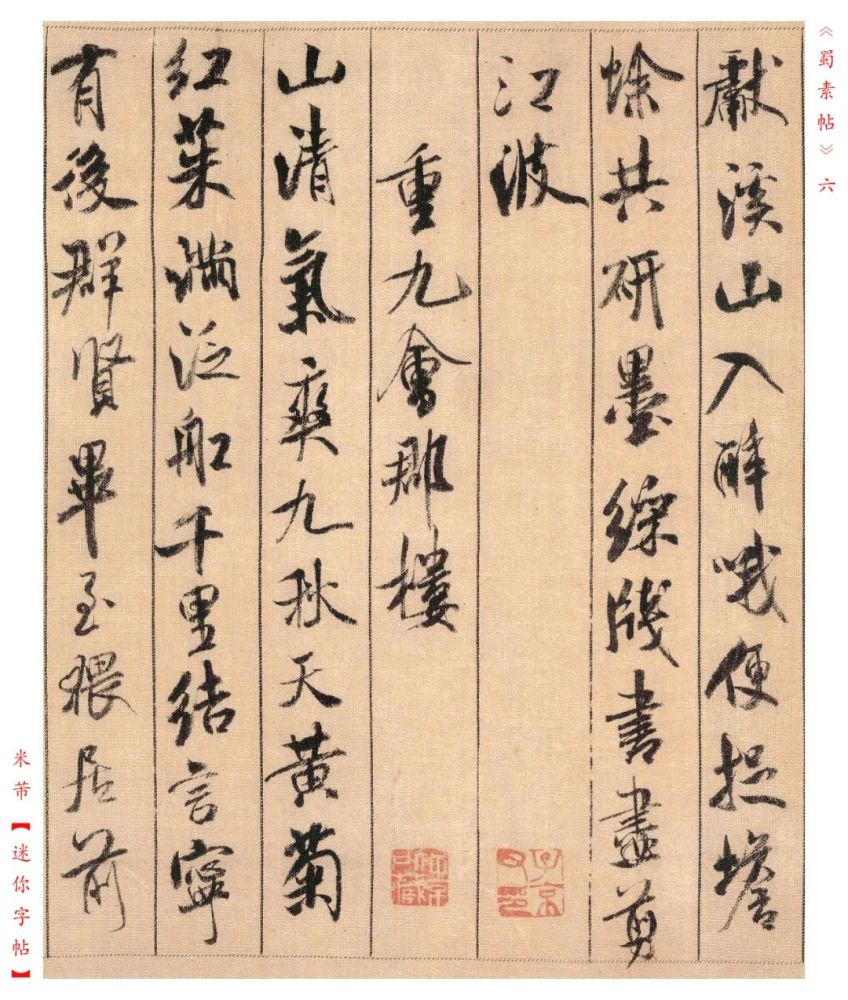 《蜀素帖》六
獻溪山入醉哦便捉蟾
蜍共研墨綵牋書盡剪
江波
重九會郡樓
山清氣爽九秋天黃菊
紅茱滿泛舡千里結言寧
有後群賢畢至猥居前
米芾【迷你字帖】